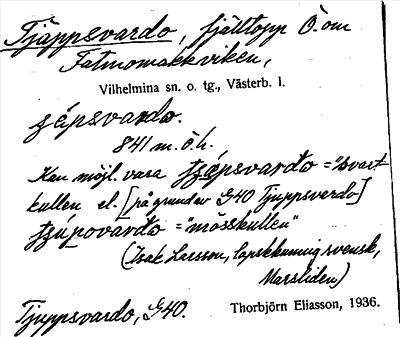 Tjäppsvardo, fjälltopp Ö. om
Fatmomakkviken,
Vilhelmina sn. o. tg., Västerb. l.
zépsvardo.
841 m. ö. h.
Kan möjl. vara tszäpsvarđo = "svart
kullen el. [på grund av G40 Tjuppsvardo]
tszúpovarđo = "mösskullen"
(Isak Larsson, lapskkunnig svensk,
Marsliden)
Tjuppsvardo, G40.
Thorbjörn Eliasson, 1936.